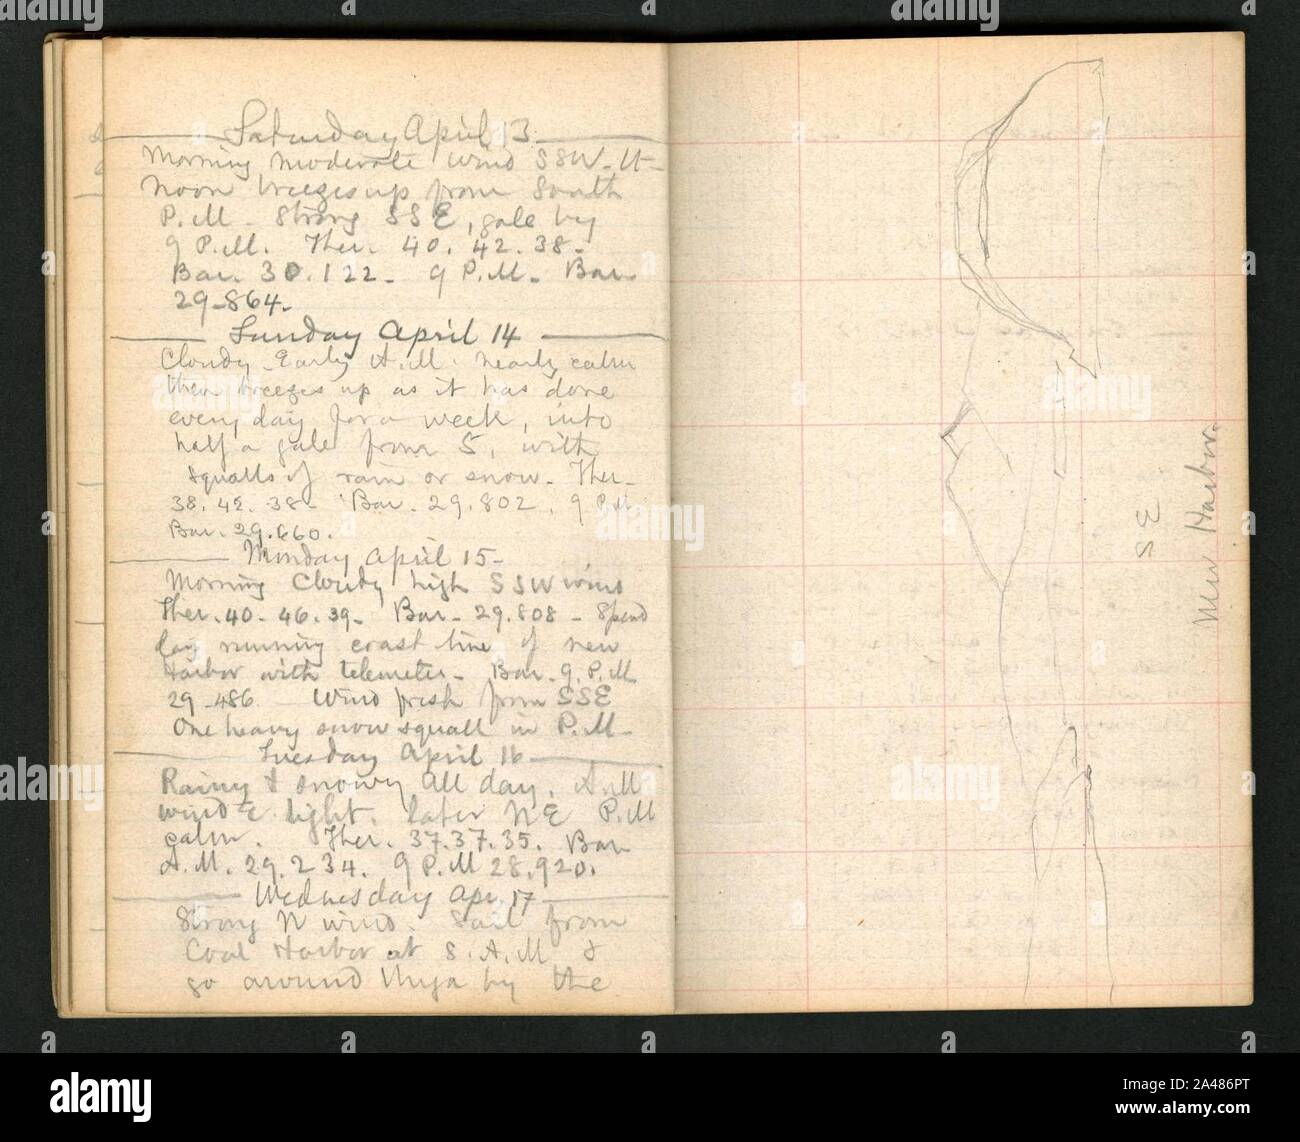 Saturday April 13.
Morning moderate wind SSW. At
noon breezes up from South
P.M. Strong SSE, gale by
9 P.M. Ther. 40. 42. 38 -
Bar. 30.122 - 9 P.M. - Bar
29.864 -
Sunday April 14
Cloudy - Early A.M. nearly calm
then breezes up as it has done
every day for a week, into
half a gale from S. with
squalls of rain or snow - Ther -
38. 42. 38 - Bar. 29.802. 9 P.M.
Bar. 29.660.
Monday April 15 -
Morning Cloudy high SSW wind
Ther. 40 - 46. 39 - Bar - 29.808 - Spend
day running coast line of new
Harbor with telemeter - Bar. 9. P.M
29.486. Wind fresh from SSE
One heavy snow squall in P.M -
Tuesday April 16
Rainy & snowy All day. A.M
wind E light. later NE P.M
calm. Ther. 37.37.35. Bar
A.M. 29.234. 9 P.M 28.920.
Wednesday Apr. 17
Strong N wind. Sail from
Coal Harbor at 8. A.M &
go around Unga by the
New Harbor.
alamy
Image ID: 2A486PT
www.alamy.com